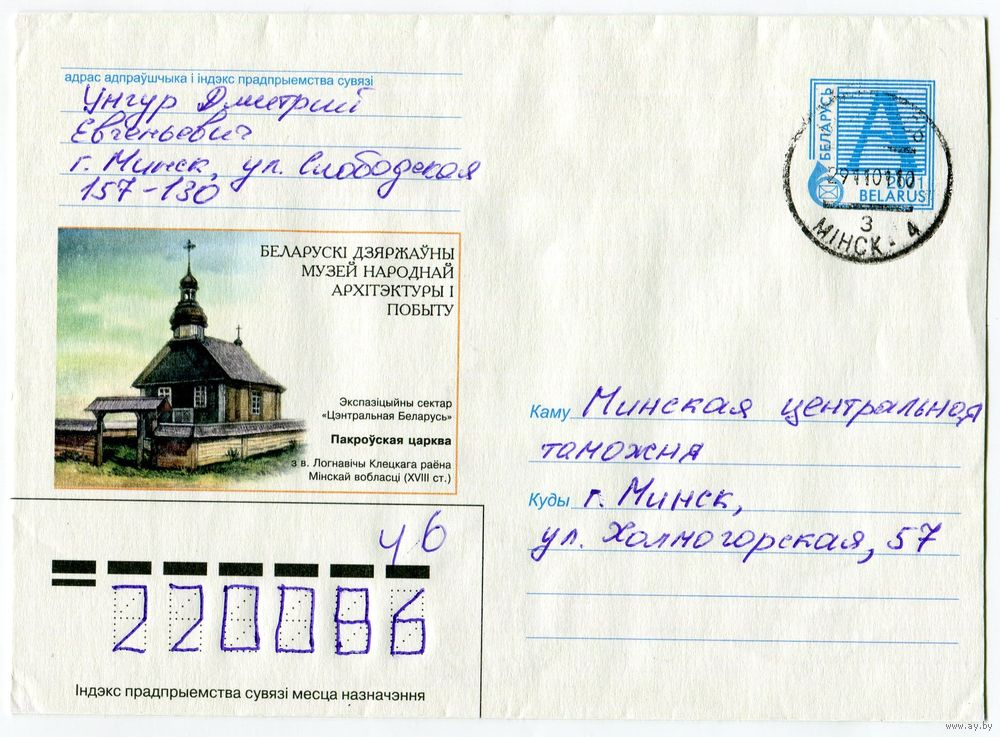 адрас адпраўшчыка і індэкс прадпрыемства сувязі
Унгур Дмитрий
Евгеньевич
г. Минск, ул. Слободская
157-130
БЕЛАРУСКІ ДЗЯРЖАЎНЫ
МУЗЕЙ НАРОДНАЙ
АРХІТЭКТУРЫ І
ПОБЫТУ
Экспазіцыйны сектар
«Цэнтральная Беларусь»
Пакроўская царква
з в. Логнавічы Клецкага раёна
Мінскай вобласці (XVIII ст.)
БЕЛАРУСЬ
A
2001
BELARUS
3
МІНСК - 4
Каму Минская центральная
таможня
Куды г. Минск,
ул. Холмогорская, 57
46
220086
Індэкс прадпрыемства сувязі месца назначэння
www.ay.by